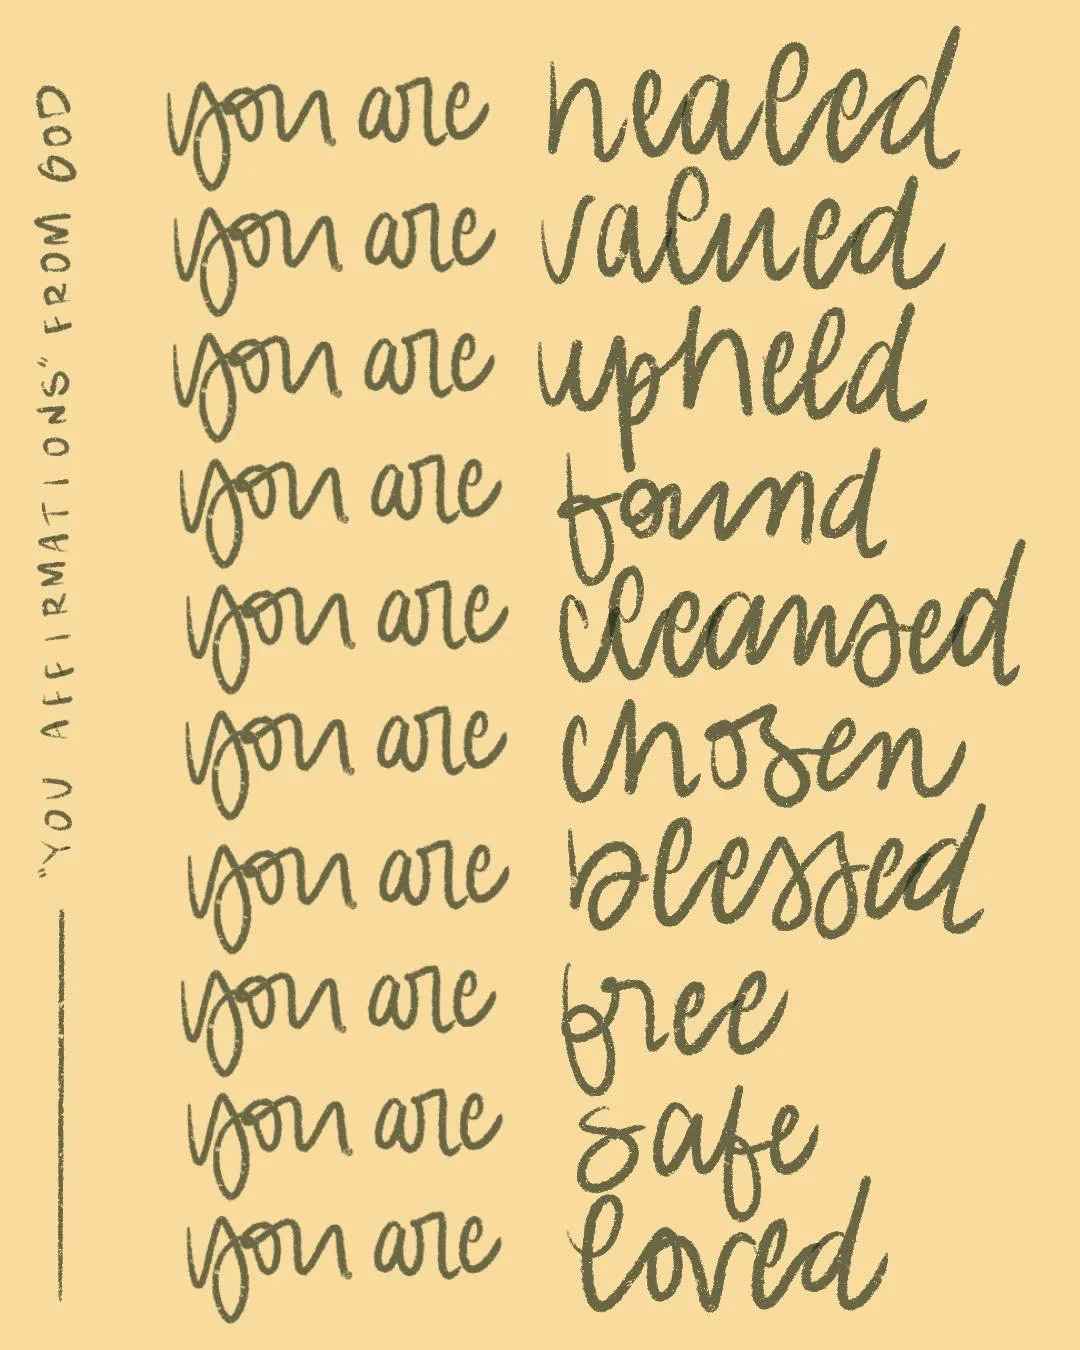 "YOU AFFIRMATIONS" FROM GOD
you are healed
you are valued
you are upheld
you are found
you are cleansed
you are chosen
you are blessed
you are free
you are safe
you are loved